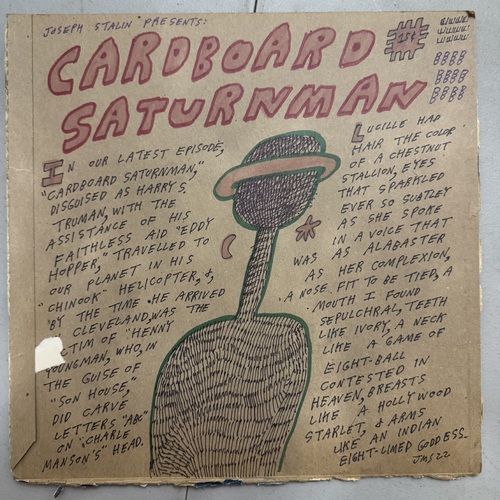 JOSEPH STALIN PRESENTS:
CARDBOARD
SATURNMAN
#1ST
IN OUR LATEST EPISODE,
"CARDBOARD SATURNMAN,"
DISGUISED AS HARRY S
TRUMAN, WITH THE
ASSISTANCE OF HIS
FAITHLESS AID "EDDY
HOPPER," TRAVELLED TO
OUR PLANET IN HIS
"CHINOOK" HELICOPTER, &,
BY THE TIME HE ARRIVED
CLEVELAND, WAS THE
CTIM OF "HENNY
YOUNGMAN, WHO, IN
THE GUISE OF
"SON HOUSE,"
DID CARVE
LETTERS "ABC"
ON "CHARLE
MANSON'S" HEAD.
LUCILLE HAD
HAIR THE COLOR
OF A CHESTNUT
STALLION, EYES
THAT SPARKLED
EVER SO SUBTLEY
AS SHE SPOKE
IN A VOICE THAT
WAS AS ALABASTER
AS HER COMPLEXION,
A NOSE FIT TO BE TIED, A
MOUTH I FOUND
SEPULCHRAL, TEETH
LIKE IVORY, A NECK
LIKE A GAME OF
EIGHT-BALL
CONTESTED IN
HEAVEN, BREASTS
LIKE A HOLLYWOOD
STARLET, & ARMS
LIKE AN INDIAN
EIGHT-LIMED GODDESS.
JMS22